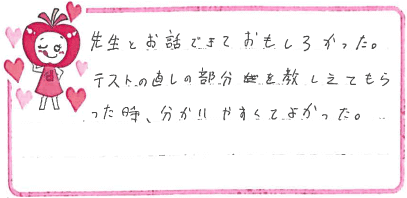 先生とお話できておもしろかった。
テストの直しの部分を教しえてもら
った時、分かりやすくてよかった。